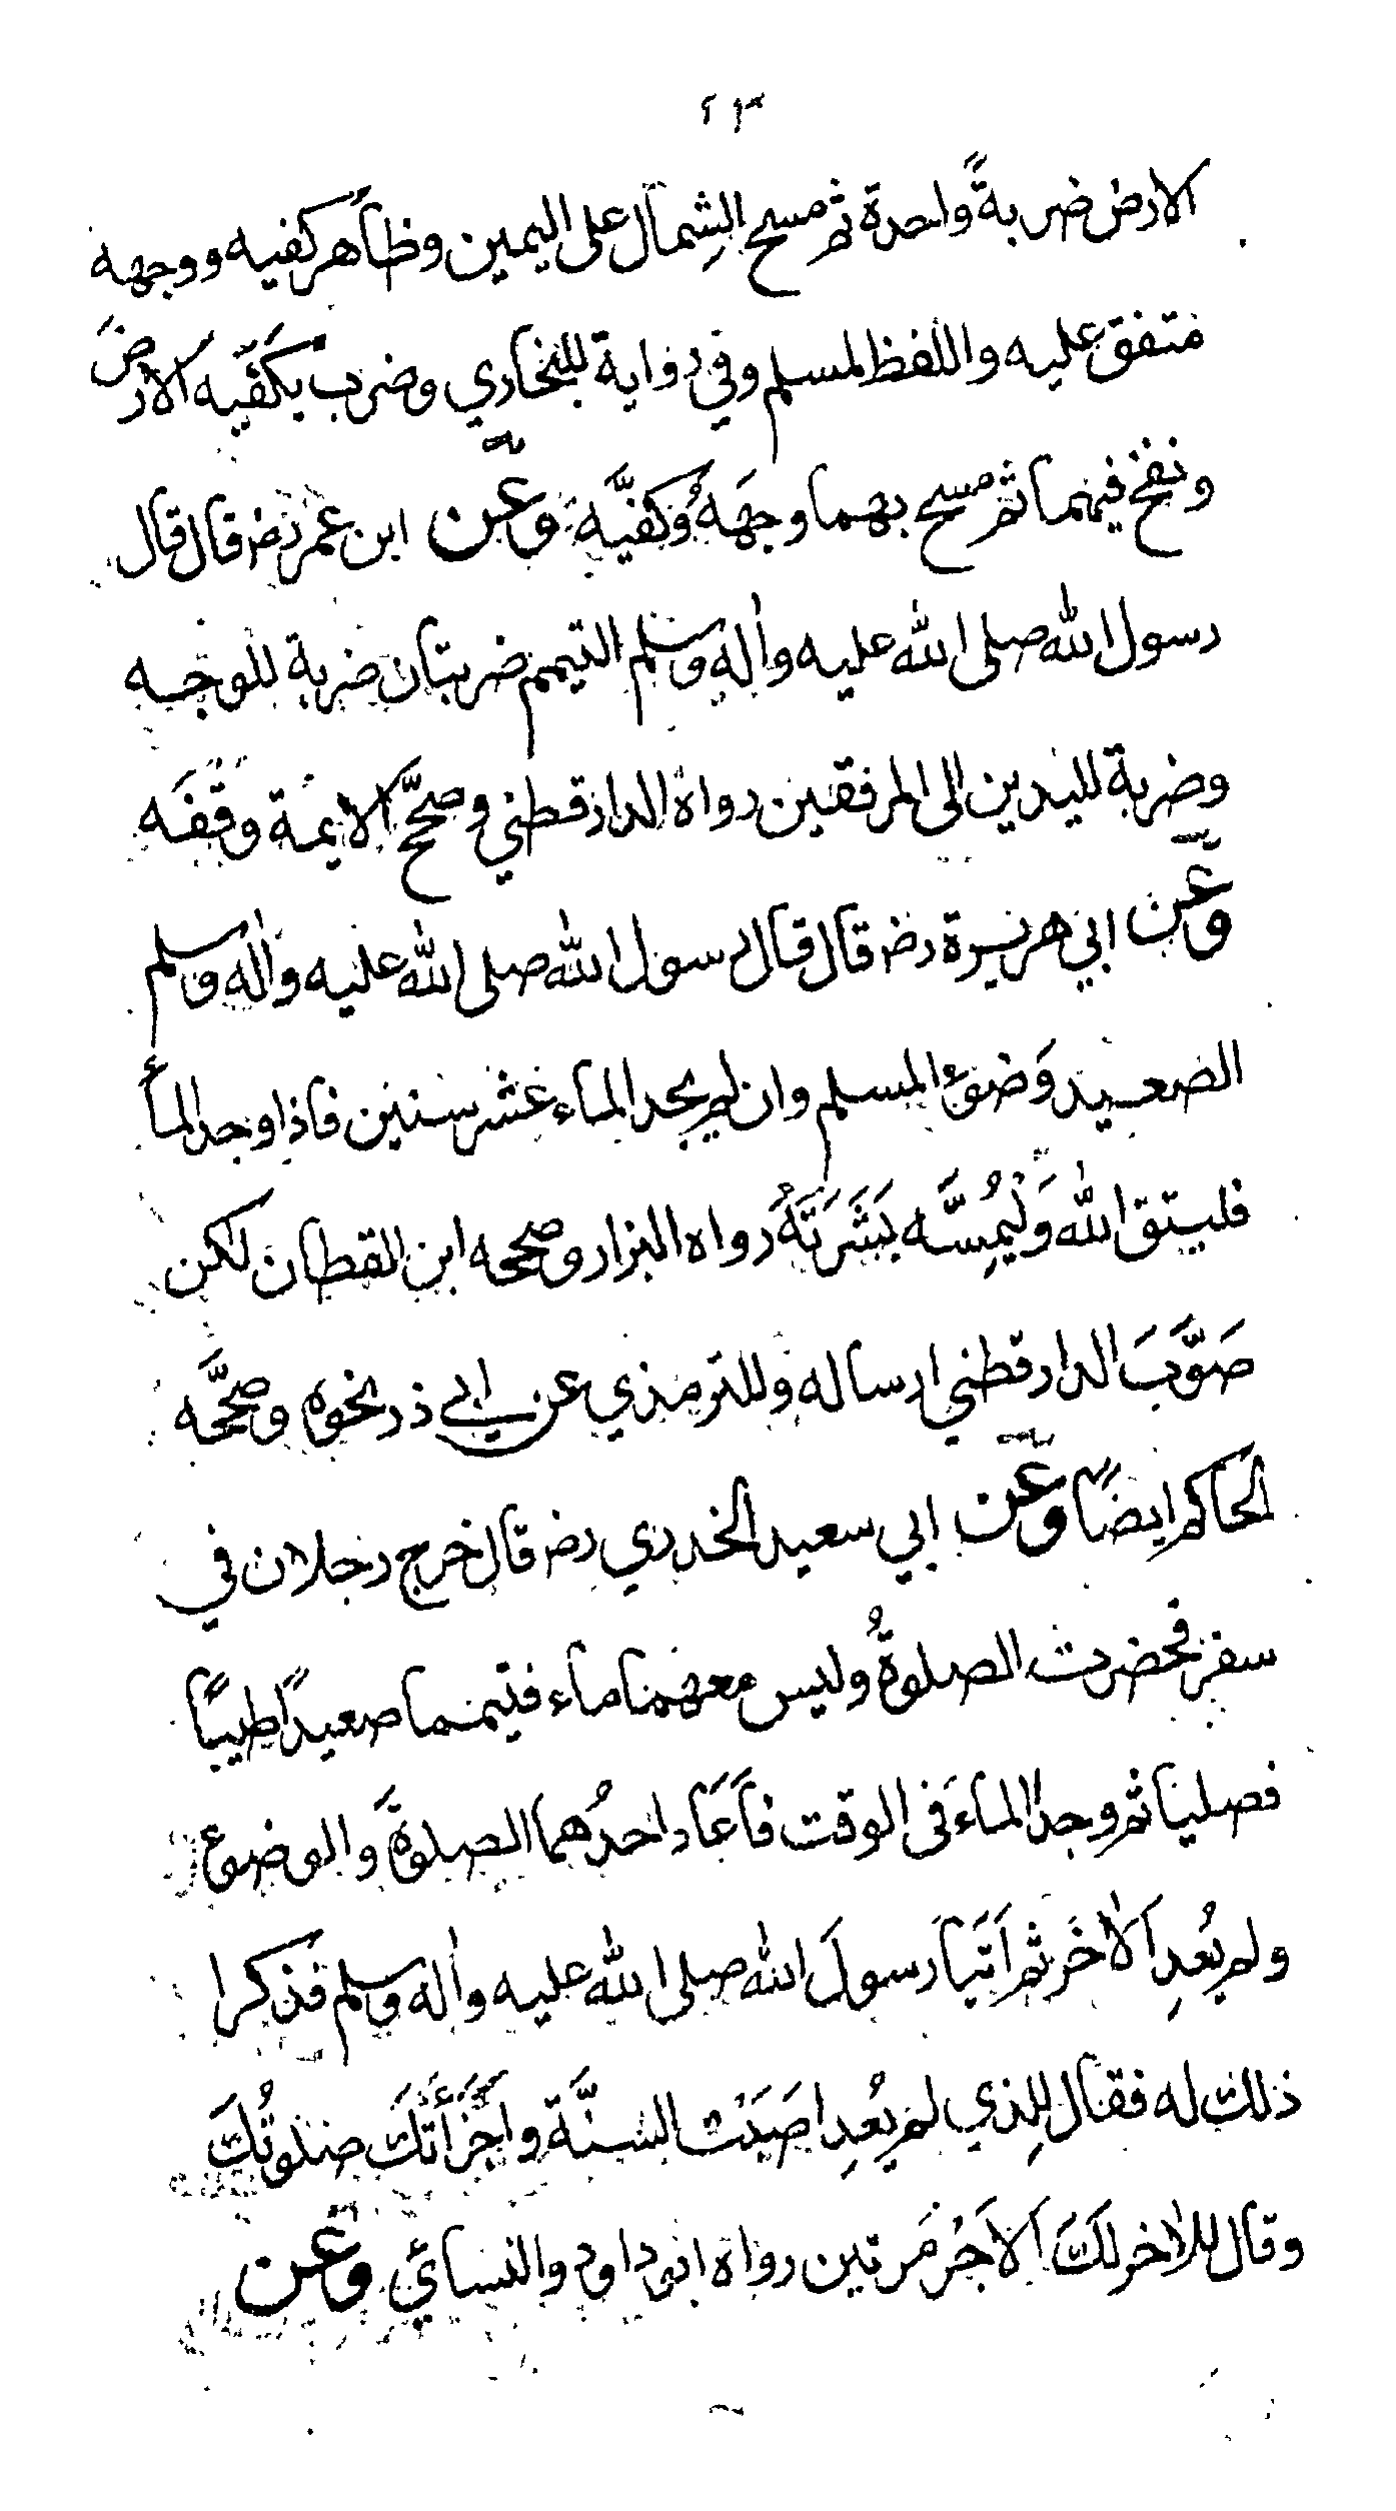 ٢٣
الارض ضربةً واحدة ثم مسح الشِمال على اليمين وظاهر كفيه ووجهه
متفق عليه واللفظ لمسلم وفي رواية للبخاري وضرب بكفَّيه الارضَ
ونفخ فيهما ثم مسح بهما وجهَهُ وكفيَّه وعن ابن عمر رضه قال قال
رسول الله صلى الله عليه واله وسلم التيمم ضربتان ضربة للوجه
وضربة لليدين الى المرفقين رواه الدارقطني وصحَّح الايمة وقفَه
وعن ابي هريرة رضه قال قال رسول الله صلى الله عليه واله وسلم
الصعيد وَضوء المسلم وان لم يجد الماء عشر سنين فاذا وجد الماء
فليتق الله وَلْيُمِسَّه بَشَرَتَهُ رواه البزار وصححه ابن القطان لكن
صَوَّبَ الدارقطني ارساله وللترمذي عن ابي ذر نحوه وصححَّه
الحاكم ايضًا وعن ابي سعيد الخدري رضه قال خرج رجلان في
سفر فحضرت الصلوةُ وليس معهما ماء فتيمما صعيدًا طيبًا
فصليا ثم وجدا الماءَ في الوقت فاَعَاد احدُهما الصلوةَ والوضوء
ولم يُعدِ اَلاٰخَر ثم اَتَيَا رسولَ الله صلى الله عليه واله وسلم فذكرا
ذلك له فقال لِلذي لم يُعدِ اصَبَتَ السنَّة واَجْزَأَتْكَ صلوتُكَ
وقال للاٰخر لكَ اَلاَجْرُ مَرتين رواه ابو داود والنسائيّ وعن